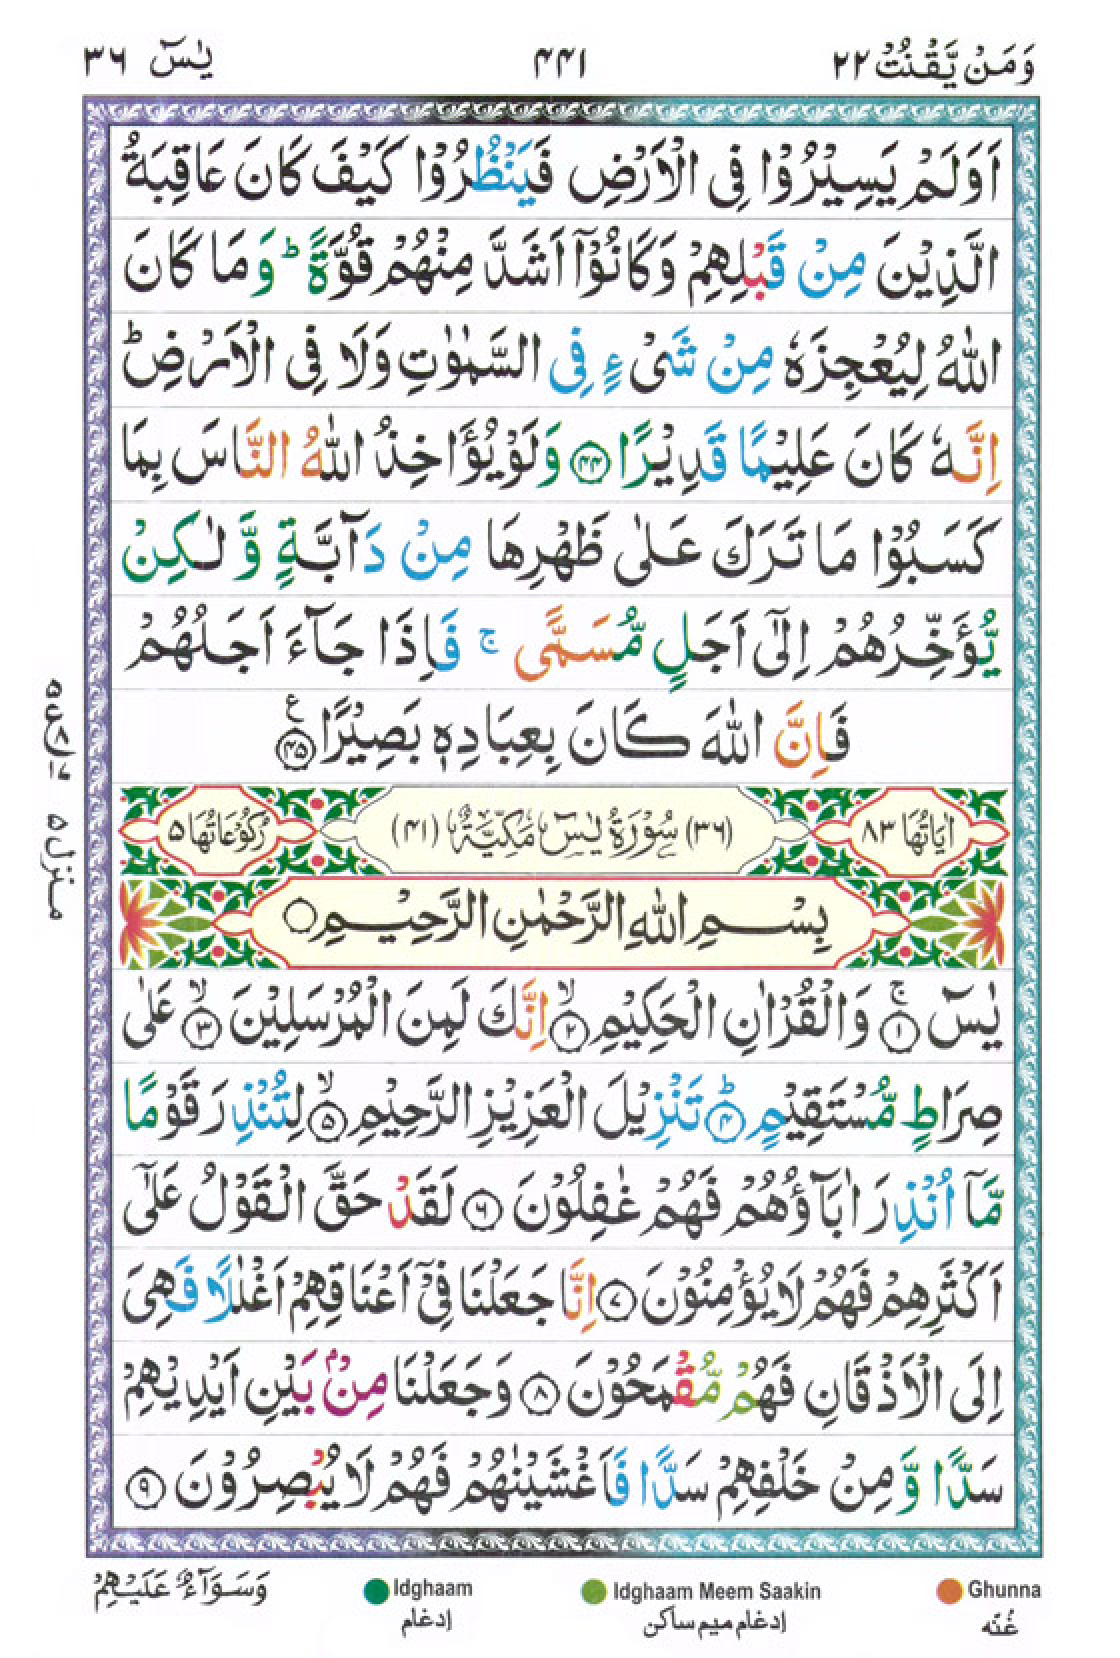 وَمَنْ يَّقْنُتْ ٢٢
٤٤١
يٰسٓ ٣٦
اَوَلَمْ يَسِيْرُوْا فِى الْاَرْضِ فَيَنْظُرُوْا كَيْفَ كَانَ عَاقِبَةُ
الَّذِيْنَ مِنْ قَبْلِهِمْ وَكَانُوْٓا اَشَدَّ مِنْهُمْ قُوَّةً ؕ وَمَا كَانَ
اللّٰهُ لِيُعْجِزَهٗ مِنْ شَىْءٍ فِى السَّمٰوٰتِ وَلَا فِى الْاَرْضِ ؕ
اِنَّهٗ كَانَ عَلِيْمًا قَدِيْرًا ۝٤٤ وَلَوْ يُؤَاخِذُ اللّٰهُ النَّاسَ بِمَا
كَسَبُوْا مَا تَرَكَ عَلٰى ظَهْرِهَا مِنْ دَآبَّةٍ وَّلٰكِنْ
يُّؤَخِّرُهُمْ اِلٰٓى اَجَلٍ مُّسَمًّى ۚ فَاِذَا جَآءَ اَجَلُهُمْ
فَاِنَّ اللّٰهَ كَانَ بِعِبَادِهٖ بَصِيْرًا ۝٤٥ ع
اٰيَاتُهَا ٨٣
(٣٦) سُوْرَةُ يٰسٓ مَكِّيَّةٌ (٤١)
رُكُوْعَاتُهَا ٥
بِسْمِ اللّٰهِ الرَّحْمٰنِ الرَّحِيْمِ ۝
يٰسٓ ۚ ۝١ وَالْقُرْاٰنِ الْحَكِيْمِ ۙ ۝٢ اِنَّكَ لَمِنَ الْمُرْسَلِيْنَ ۙ ۝٣ عَلٰى
صِرَاطٍ مُّسْتَقِيْمٍ ؕ ۝٤ تَنْزِيْلَ الْعَزِيْزِ الرَّحِيْمِ ۙ ۝٥ لِتُنْذِرَ قَوْمًا
مَّآ اُنْذِرَ اٰبَآؤُهُمْ فَهُمْ غٰفِلُوْنَ ۝٦ لَقَدْ حَقَّ الْقَوْلُ عَلٰٓى
اَكْثَرِهِمْ فَهُمْ لَا يُؤْمِنُوْنَ ۝٧ اِنَّا جَعَلْنَا فِىْٓ اَعْنَاقِهِمْ اَغْلٰلًا فَهِىَ
اِلَى الْاَذْقَانِ فَهُمْ مُّقْمَحُوْنَ ۝٨ وَجَعَلْنَا مِنْۢ بَيْنِ اَيْدِيْهِمْ
سَدًّا وَّمِنْ خَلْفِهِمْ سَدًّا فَاَغْشَيْنٰهُمْ فَهُمْ لَا يُبْصِرُوْنَ ۝٩
منزل ٥
وَسَوَآءٌ عَلَيْهِمْ
Idghaam
ادغام
Idghaam Meem Saakin
ادغام میم ساکن
Ghunna
غُنّه